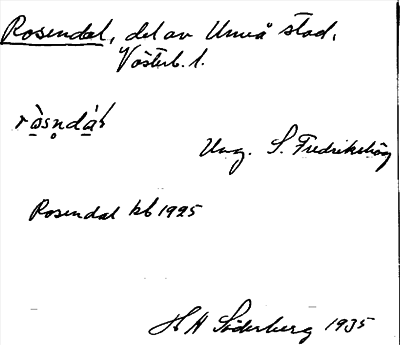 Rosendal, del av Umeå stad,
Västerb. l.
Ung. S. Fredrikshög
Rosendal kb 1925
H A Söderberg 1935